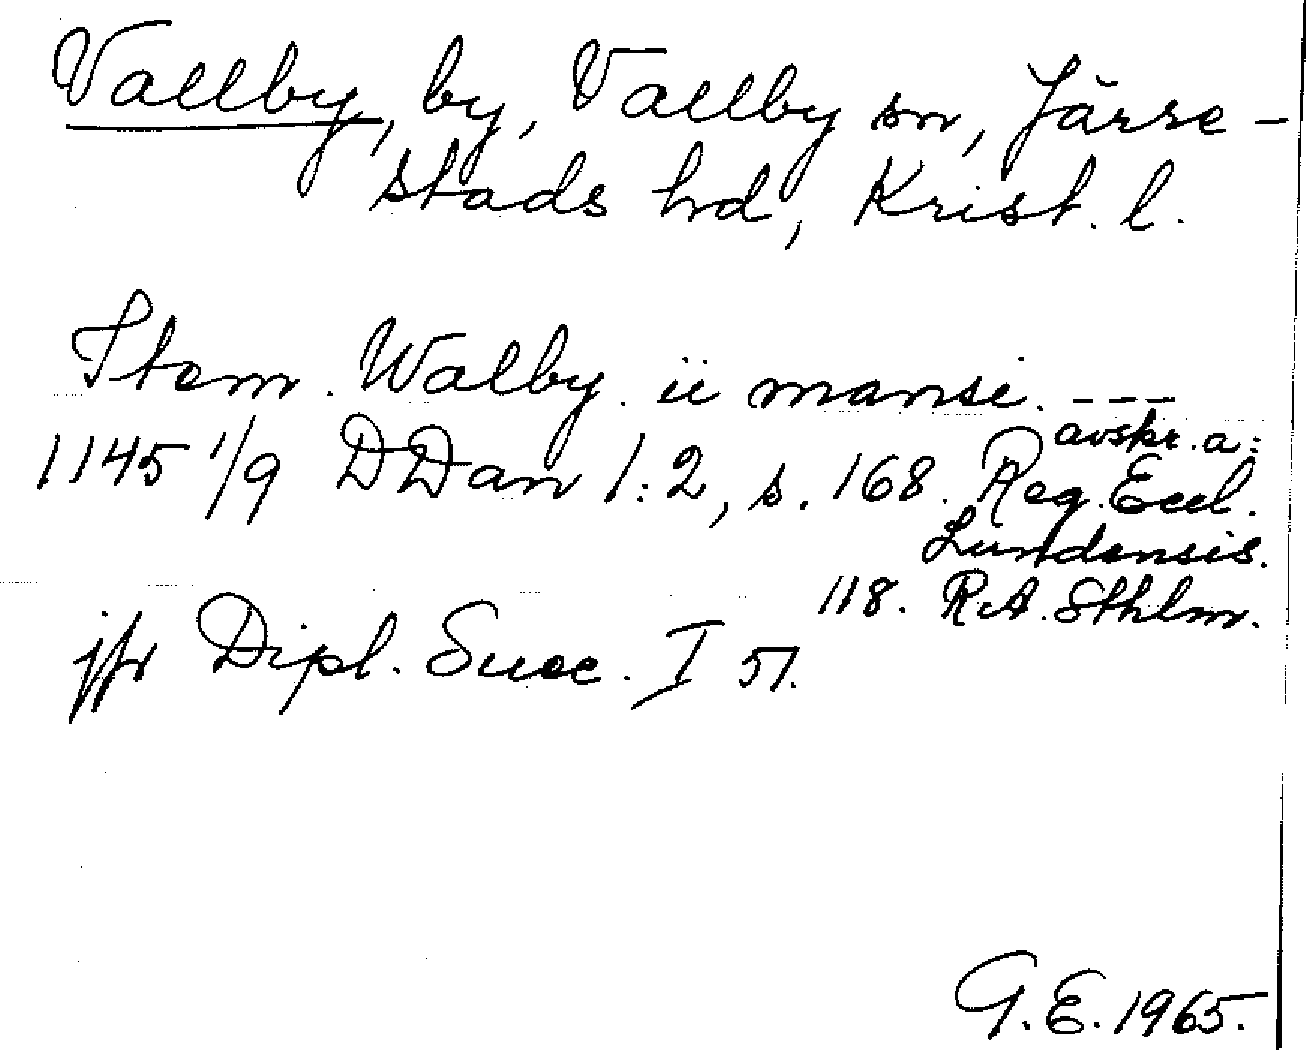 Vallby, by, Vallby sn, Järre-
stads hd, Krist. l.
Item. Walby. ii mansi. ---
1145 1/9 DDan 1:2, s. 168. avskr. a:
Reg. Eccl.
Lundensis.
118. RA. Sthlm.
jfr Dipl. Suec. I 51.
G.E. 1965.